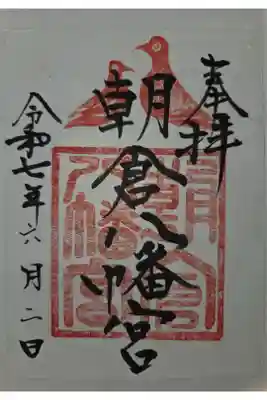 奉拝
朝倉八幡宮
令和七年六月二日
朝倉八幡宮